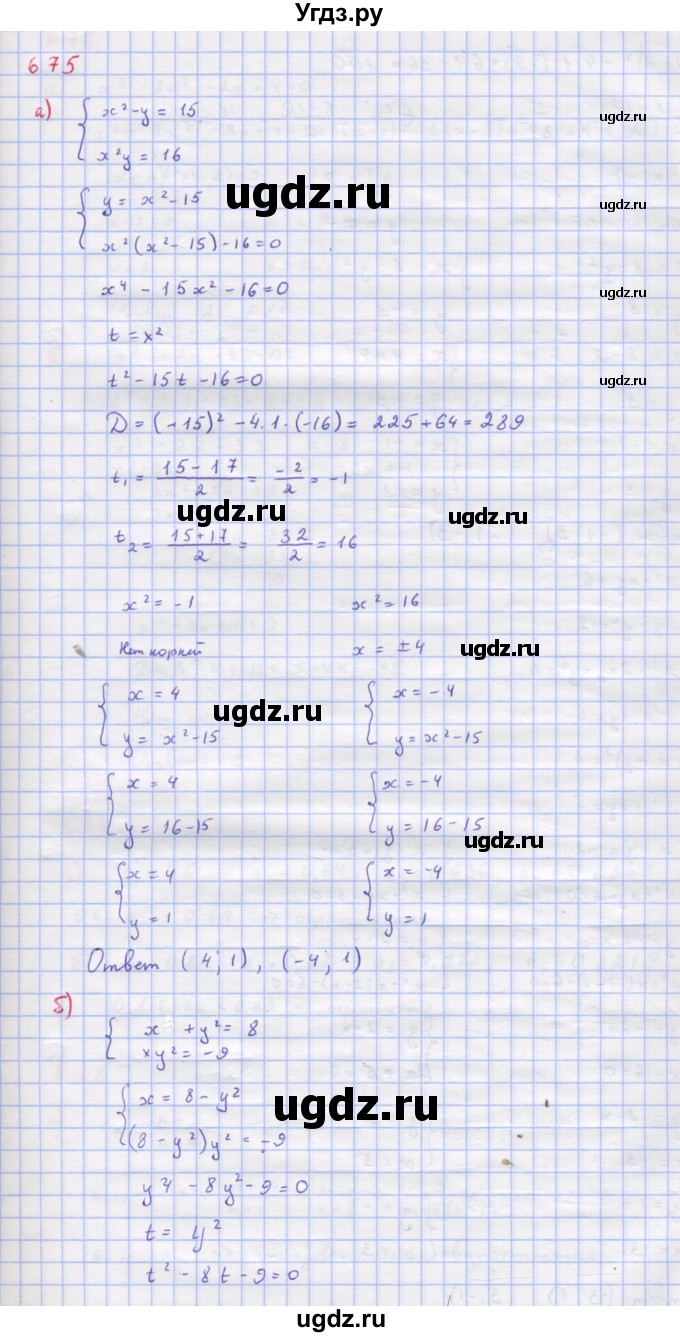 Угдз.ру
675
а) { x² - y = 15
x²y = 16
ugdz.ru
{ y = x² - 15
ugdz.ru
ugdz.ru
x²(x² - 15) - 16 = 0
x⁴ - 15x² - 16 = 0
ugdz.ru
t = x²
t² - 15t - 16 = 0
ugdz.ru
D = (-15)² - 4·1·(-16) = 225 + 64 = 289
t₁ = (15 - 17)/2 = -2/2 = -1
ugdz.ru
ugdz.ru
t₂ = (15 + 17)/2 = 32/2 = 16
x² = -1 x² = 16
Нет корней x = ±4
ugdz.ru
{ x = 4 { x = -4
ugdz.ru
y = x² - 15 y = x² - 15
{ x = 4 { x = -4
y = 16 - 15 y = 16 - 15
ugdz.ru
{ x = 4 { x = -4
y = 1 y = 1
Ответ (4; 1), (-4; 1)
б)
{ x + y² = 8
xy² = -9
{ x = 8 - y²
ugdz.ru
(8 - y²)y² = -9
y4 - 8y² - 9 = 0
t = y²
t² - 8t - 9 = 0
ugdz.ru